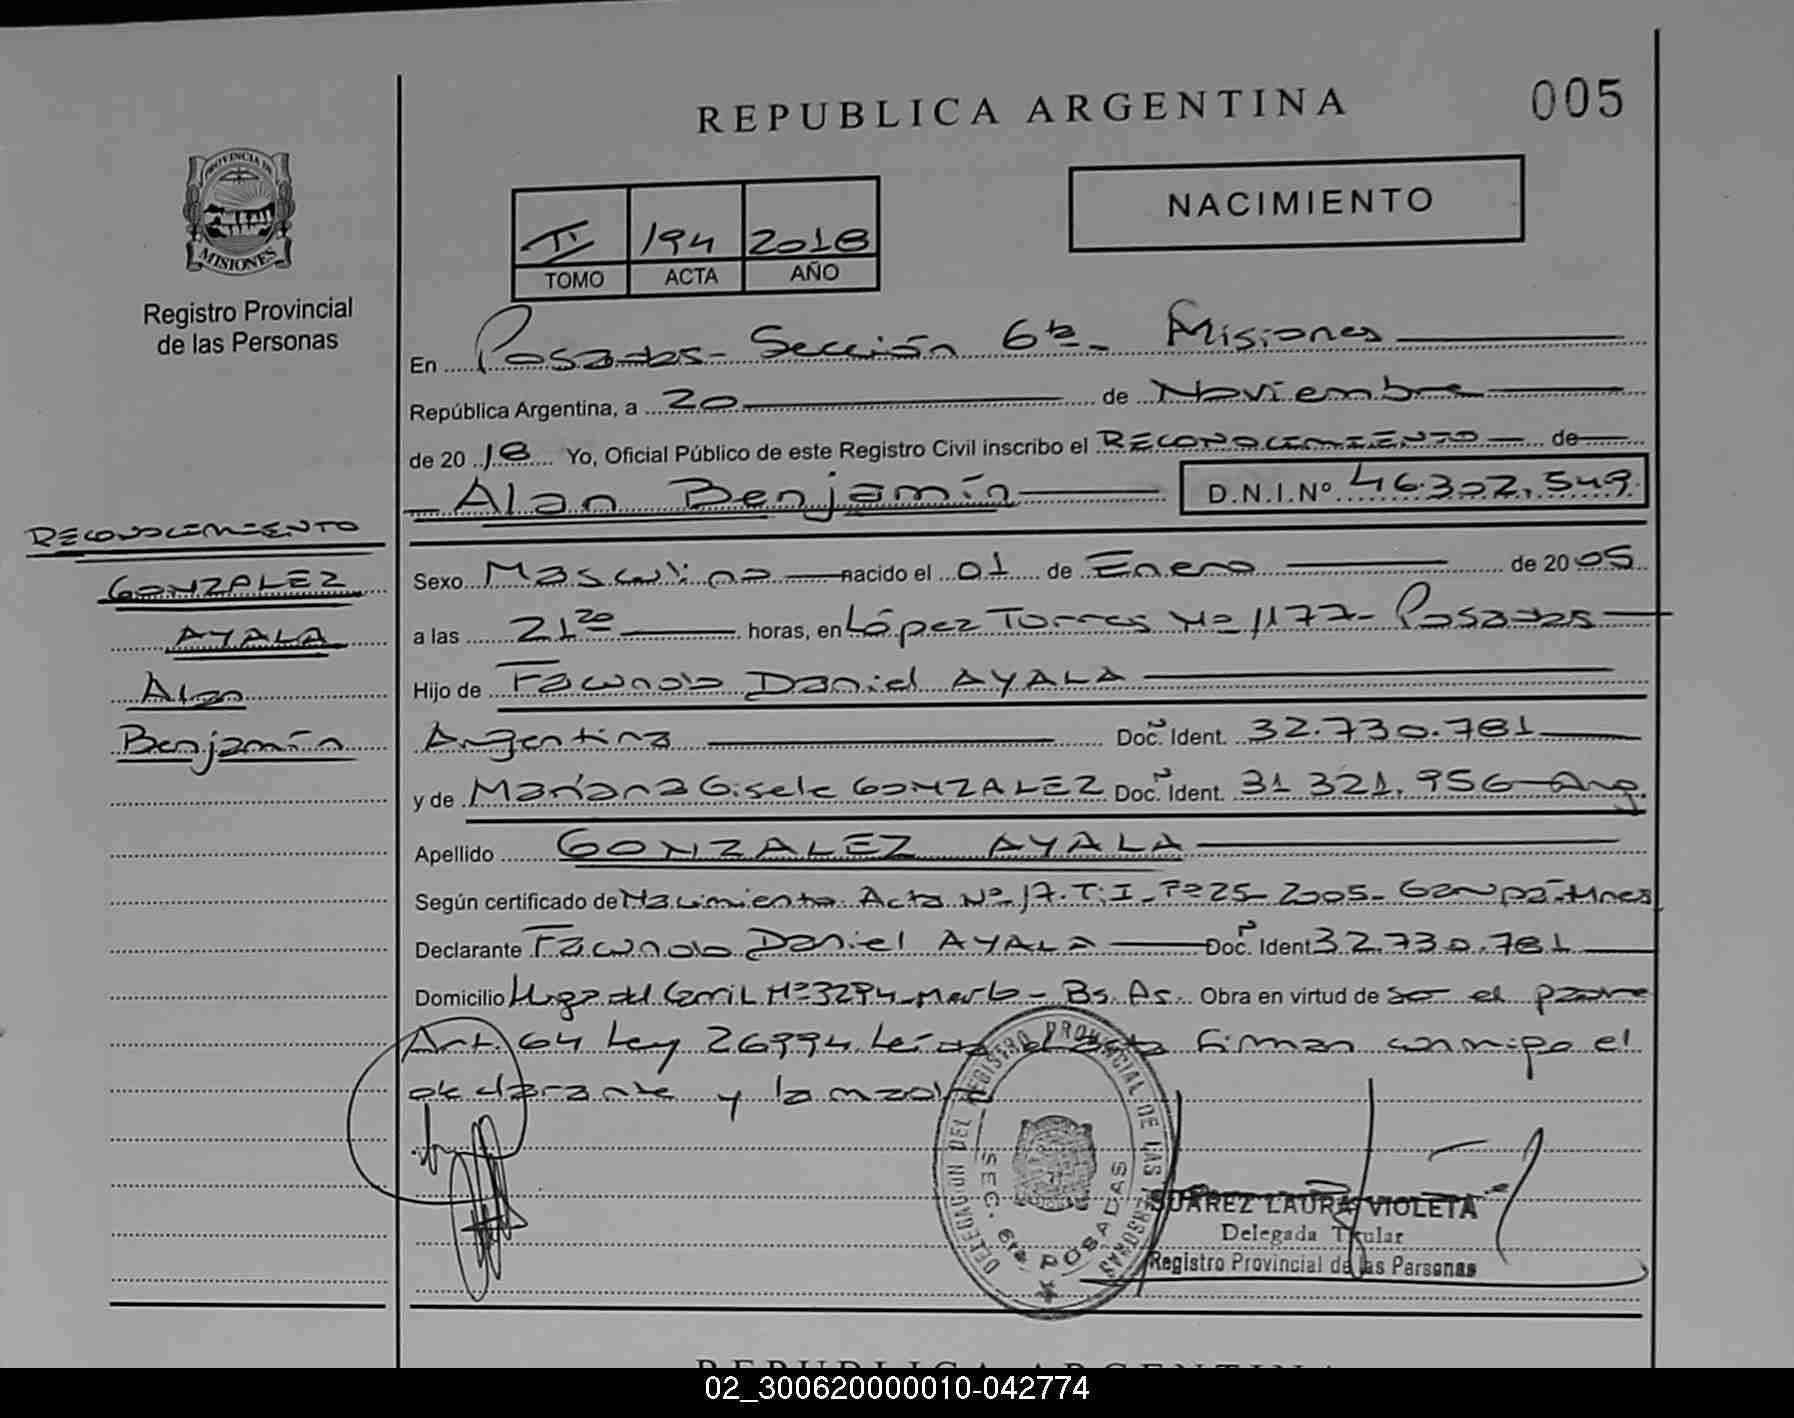 REPUBLICA ARGENTINA
005
PROVINCIA DE
MISIONES
Registro Provincial
de las Personas
II 194 2018
TOMO ACTA AÑO
NACIMIENTO
En Posadas - Sección 6ta - Misiones
República Argentina, a 20 de Noviembre
de 2018 Yo, Oficial Público de este Registro Civil inscribo el RECONOCIMIENTO de
Alan Benjamín D.N.I.Nº 46.302.549
RECONOCIMIENTO
GONZALEZ
AYALA
Alan
Benjamín
Sexo Masculino nacido el 01 de Enero de 2005
a las 21 20 horas, en López Torres Nº 1177 - Posadas
Hijo de Facundo Daniel AYALA
Argentina Doc. Ident. 32.730.781
y de Mariana Gisele GONZALEZ Doc. Ident. 31.321.956 - Arg.
Apellido GONZALEZ AYALA
Según certificado de Nacimiento Acta Nº 17. T. I - Fº 25 - 2005 - Mnes
Declarante Facundo Daniel AYALA Doc. Ident 32.730.781
Domicilio Hugo del Carril Nº 3294 - Merlo - Bs. As. Obra en virtud de ser el padre
Art. 64 Ley 26994. Leída el acta firman conmigo el
declarante y la madre
DELEGACION DEL REGISTRO PROVINCIAL DE LAS PERSONAS
SEC. 6ta POSADAS
SUAREZ LAURA VIOLETA
Delegada Titular
Registro Provincial de las Personas
REPUBLICA ARGENTINA
02_300620000010-042774